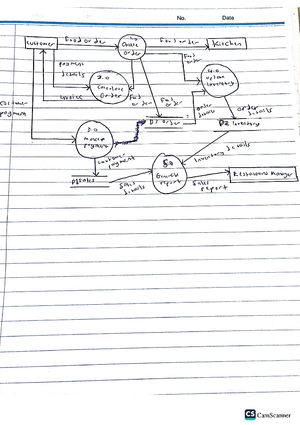 No. Date
Customer
Food order
1.0
Create
order
Food order
Kitchen
payment
details
2.0
order
Food
order
4.0
update
inventory
invoice
Food
order
Food
order
order
details
order
details
customer
payment
3.0
payment
D1 order
D2 Inventory
customer
payment
Inventory details
D3 Sales
Sales
details
5.0
Generate
report
Sales
report
Restaurant Manager
CS CamScanner